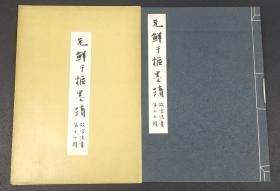 元鮮于樞墨蹟
故宮法書
第十七輯
元鮮于樞墨蹟
故宮法書
第十七輯